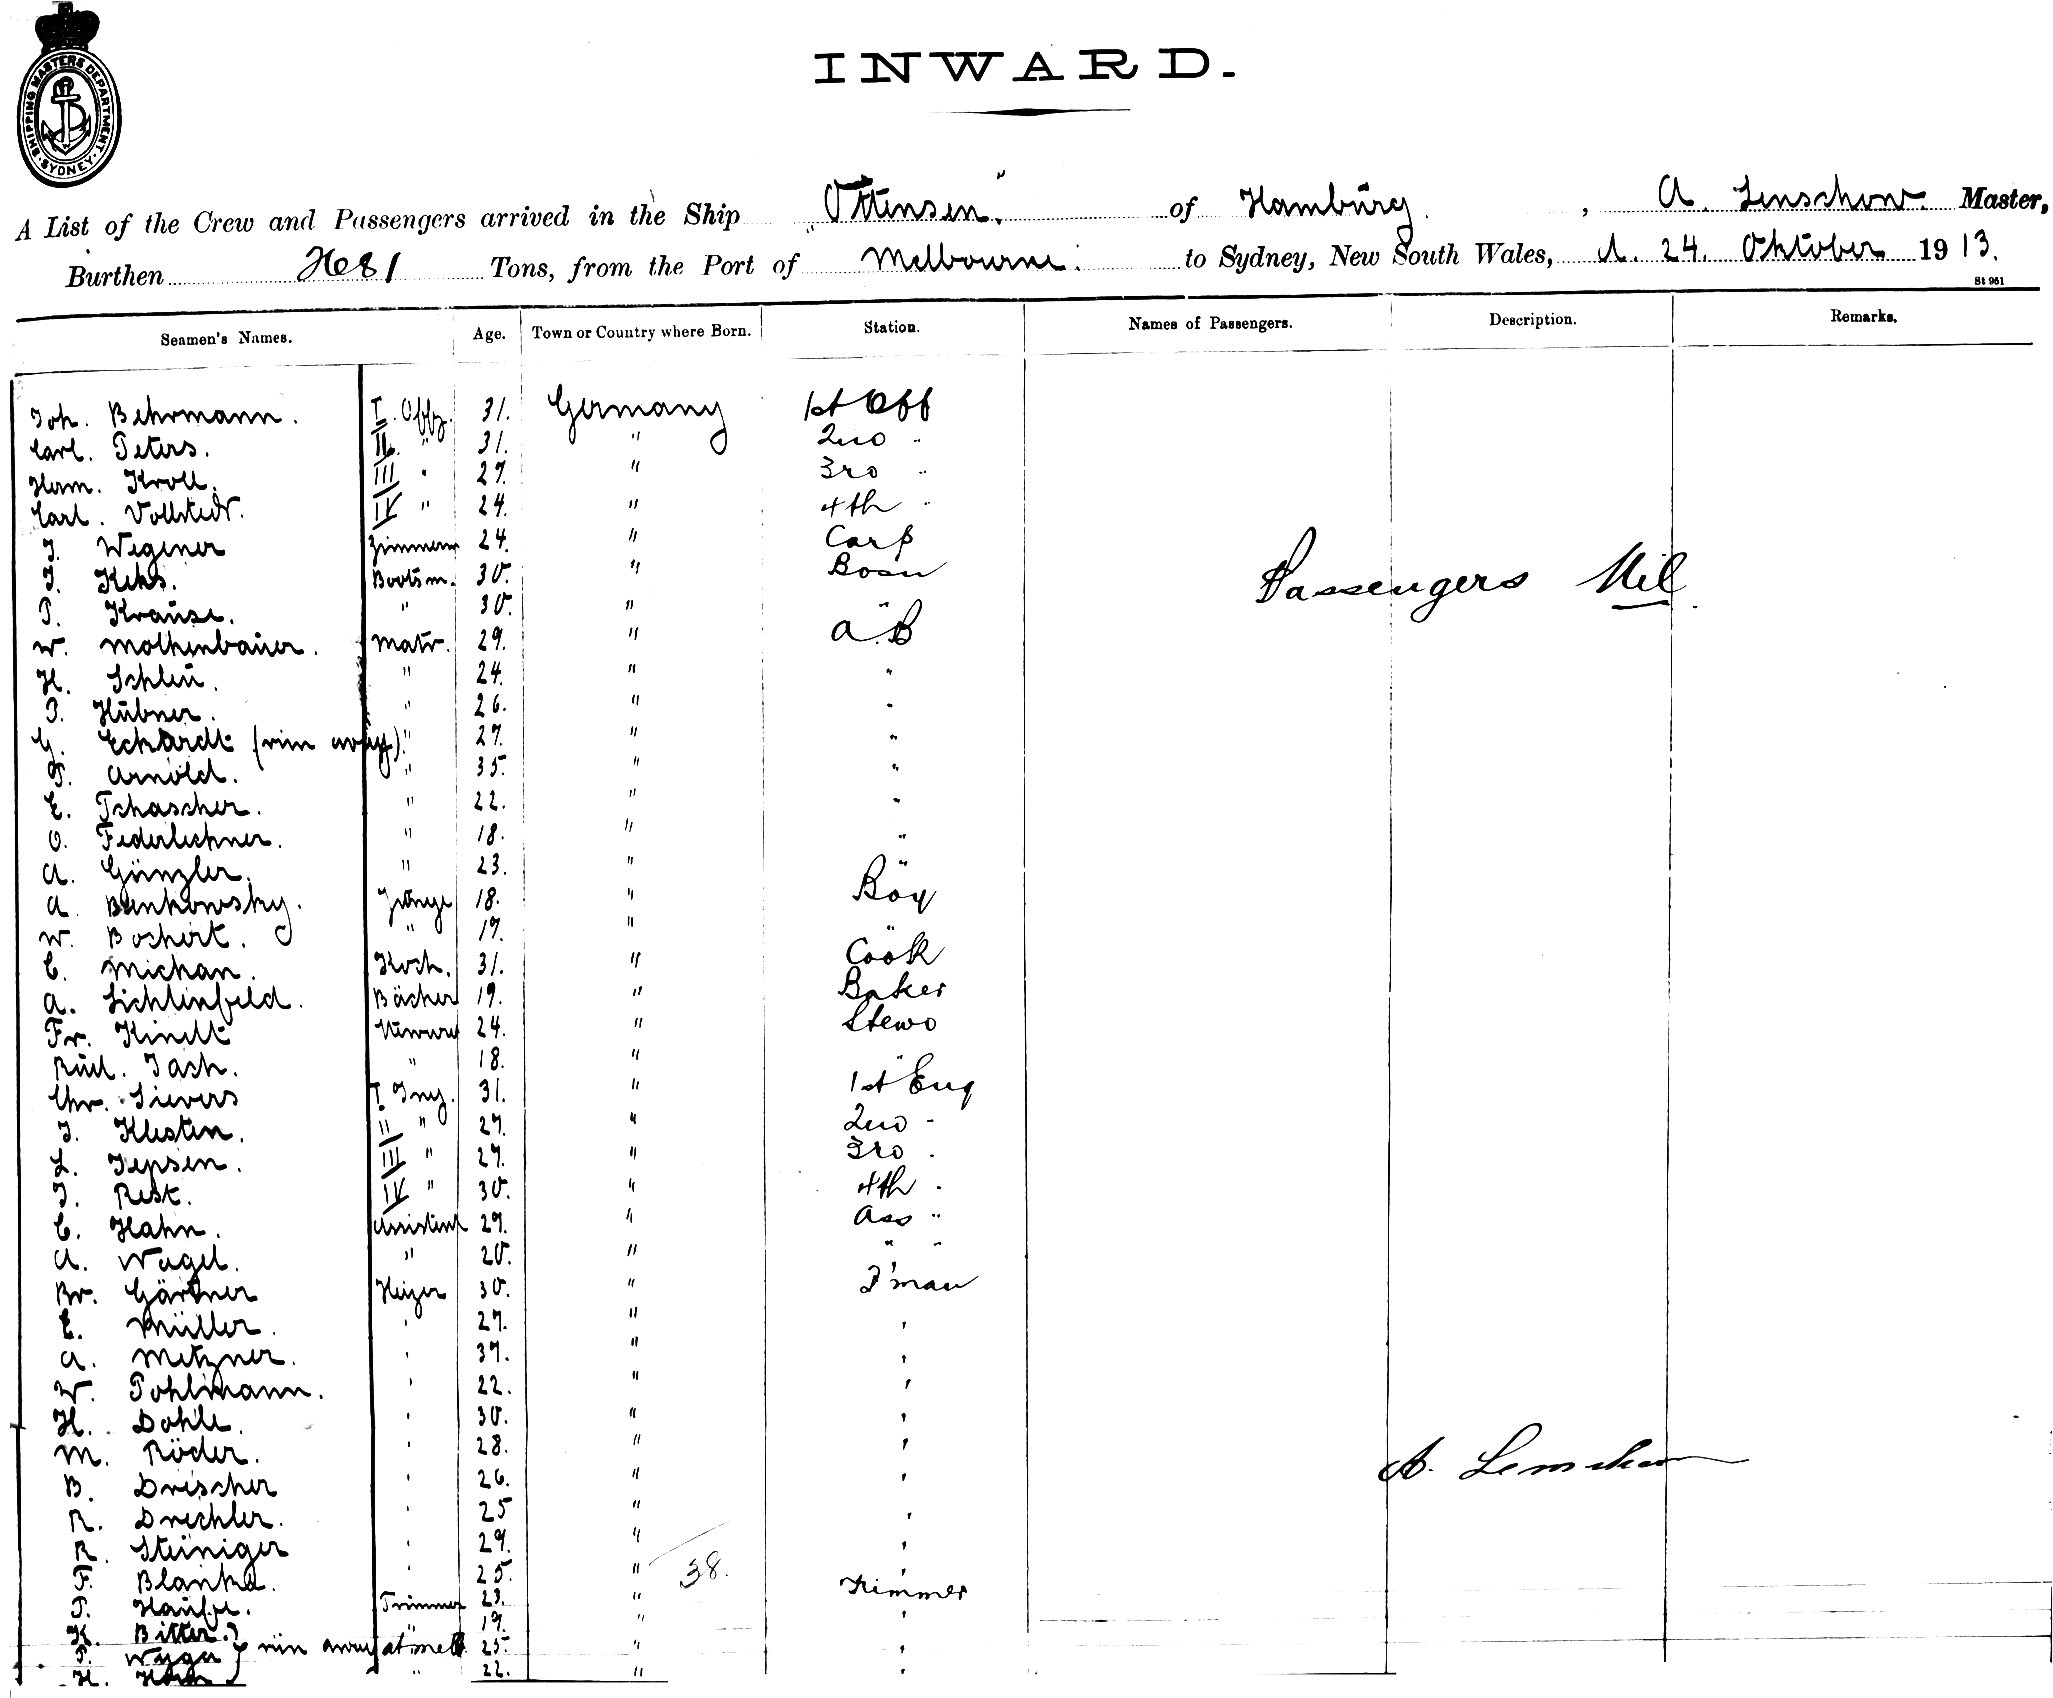 SHIPPING MASTERS DEPARTMENT. SYDNEY
INWARD.
A List of the Crew and Passengers arrived in the Ship "Ottensen." of Hamburg, A. Lenschow. Master,
Burthen Tons, from the Port of Melbourne. to Sydney, New South Wales, d. 24. Oktober 1913.
St 961
Seamen's Names. Age. Town or Country where Born. Station. Names of Passengers. Description. Remarks.
Joh. Behrmann. I. Offz. 31. Germany 1st Off
Carl. Peters. II. " 31. " 2nd "
Herm. Kroll. III " 27. " 3rd "
Carl. Vollstedt. IV " 24. " 4th "
J. Wegener Zimmerm 24. " Carp
J. Kehs. Bootsm. 30. " Bosn
P. Krause. " 30. " "
Passengers Nil.
W. Molkenbauer. Matr. 29. " A.B
H. Schleu. " 24. " "
P. Hübner. " 26. " "
G. Eckardt (run away) " 27. " "
P. Arnold. " 35. " "
E. Tschascher. " 22. " "
O. Federlechner. " 18. " "
A. Günzler. " 23. " "
A. Bunkowsky. Junge 18. " Boy
W. Bochert. " 17. " "
C. Michan. Koch. 31. " Cook
A. Lichtenfeld. Bäcker 19. " Baker
Fr. Kindt Steward 24. " Stewd
Rud. Jach. " 18. " "
Chr. Sievers I. Ing. 31. " 1st Eng
J. Klesten. II " 27. " 2nd "
L. Jepsen. III " 27. " 3rd "
J. Rest. IV " 30. " 4th "
C. Hahn. Assistent 29. " Ass "
A. Wagel. " 20. " " "
Br. Gärtner Heizer 30. " F'man
E. Müller. " 27. " "
A. Metzner. " 37. " "
W. Pohlmann. " 22. " "
H. Dohle. " 30. " "
M. Röder. " 28. " "
A. Lenschow
B. Drescher " 26. " "
R. Drechler. " 25 " "
R. Steiniger " 29. " "
F. Blanka. " 25. " 38. "
P. Haufe. Trimmer 23. " Trimmer
K. Bitter. " 19. " "
P. run away at Melb 25. " "
H. " 22. " "